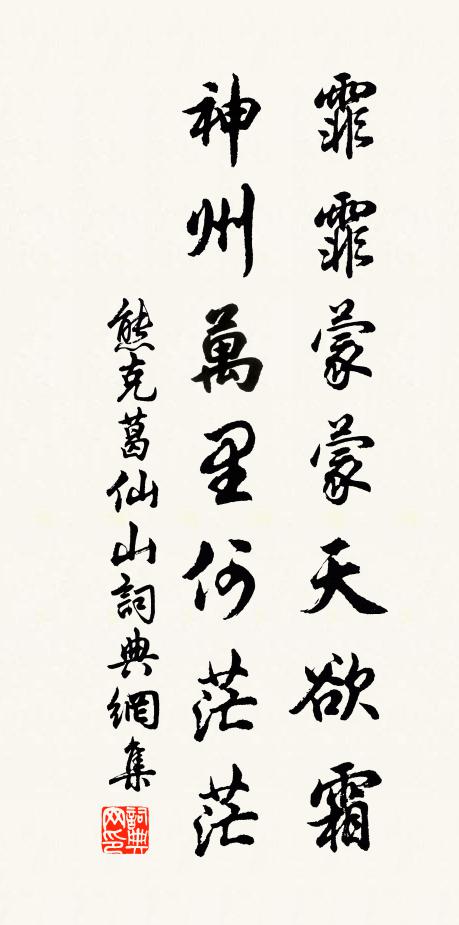 霏霏蒙蒙天欲霜
神州萬里何茫茫
熊克葛仙山詞典網集
詞典
网印